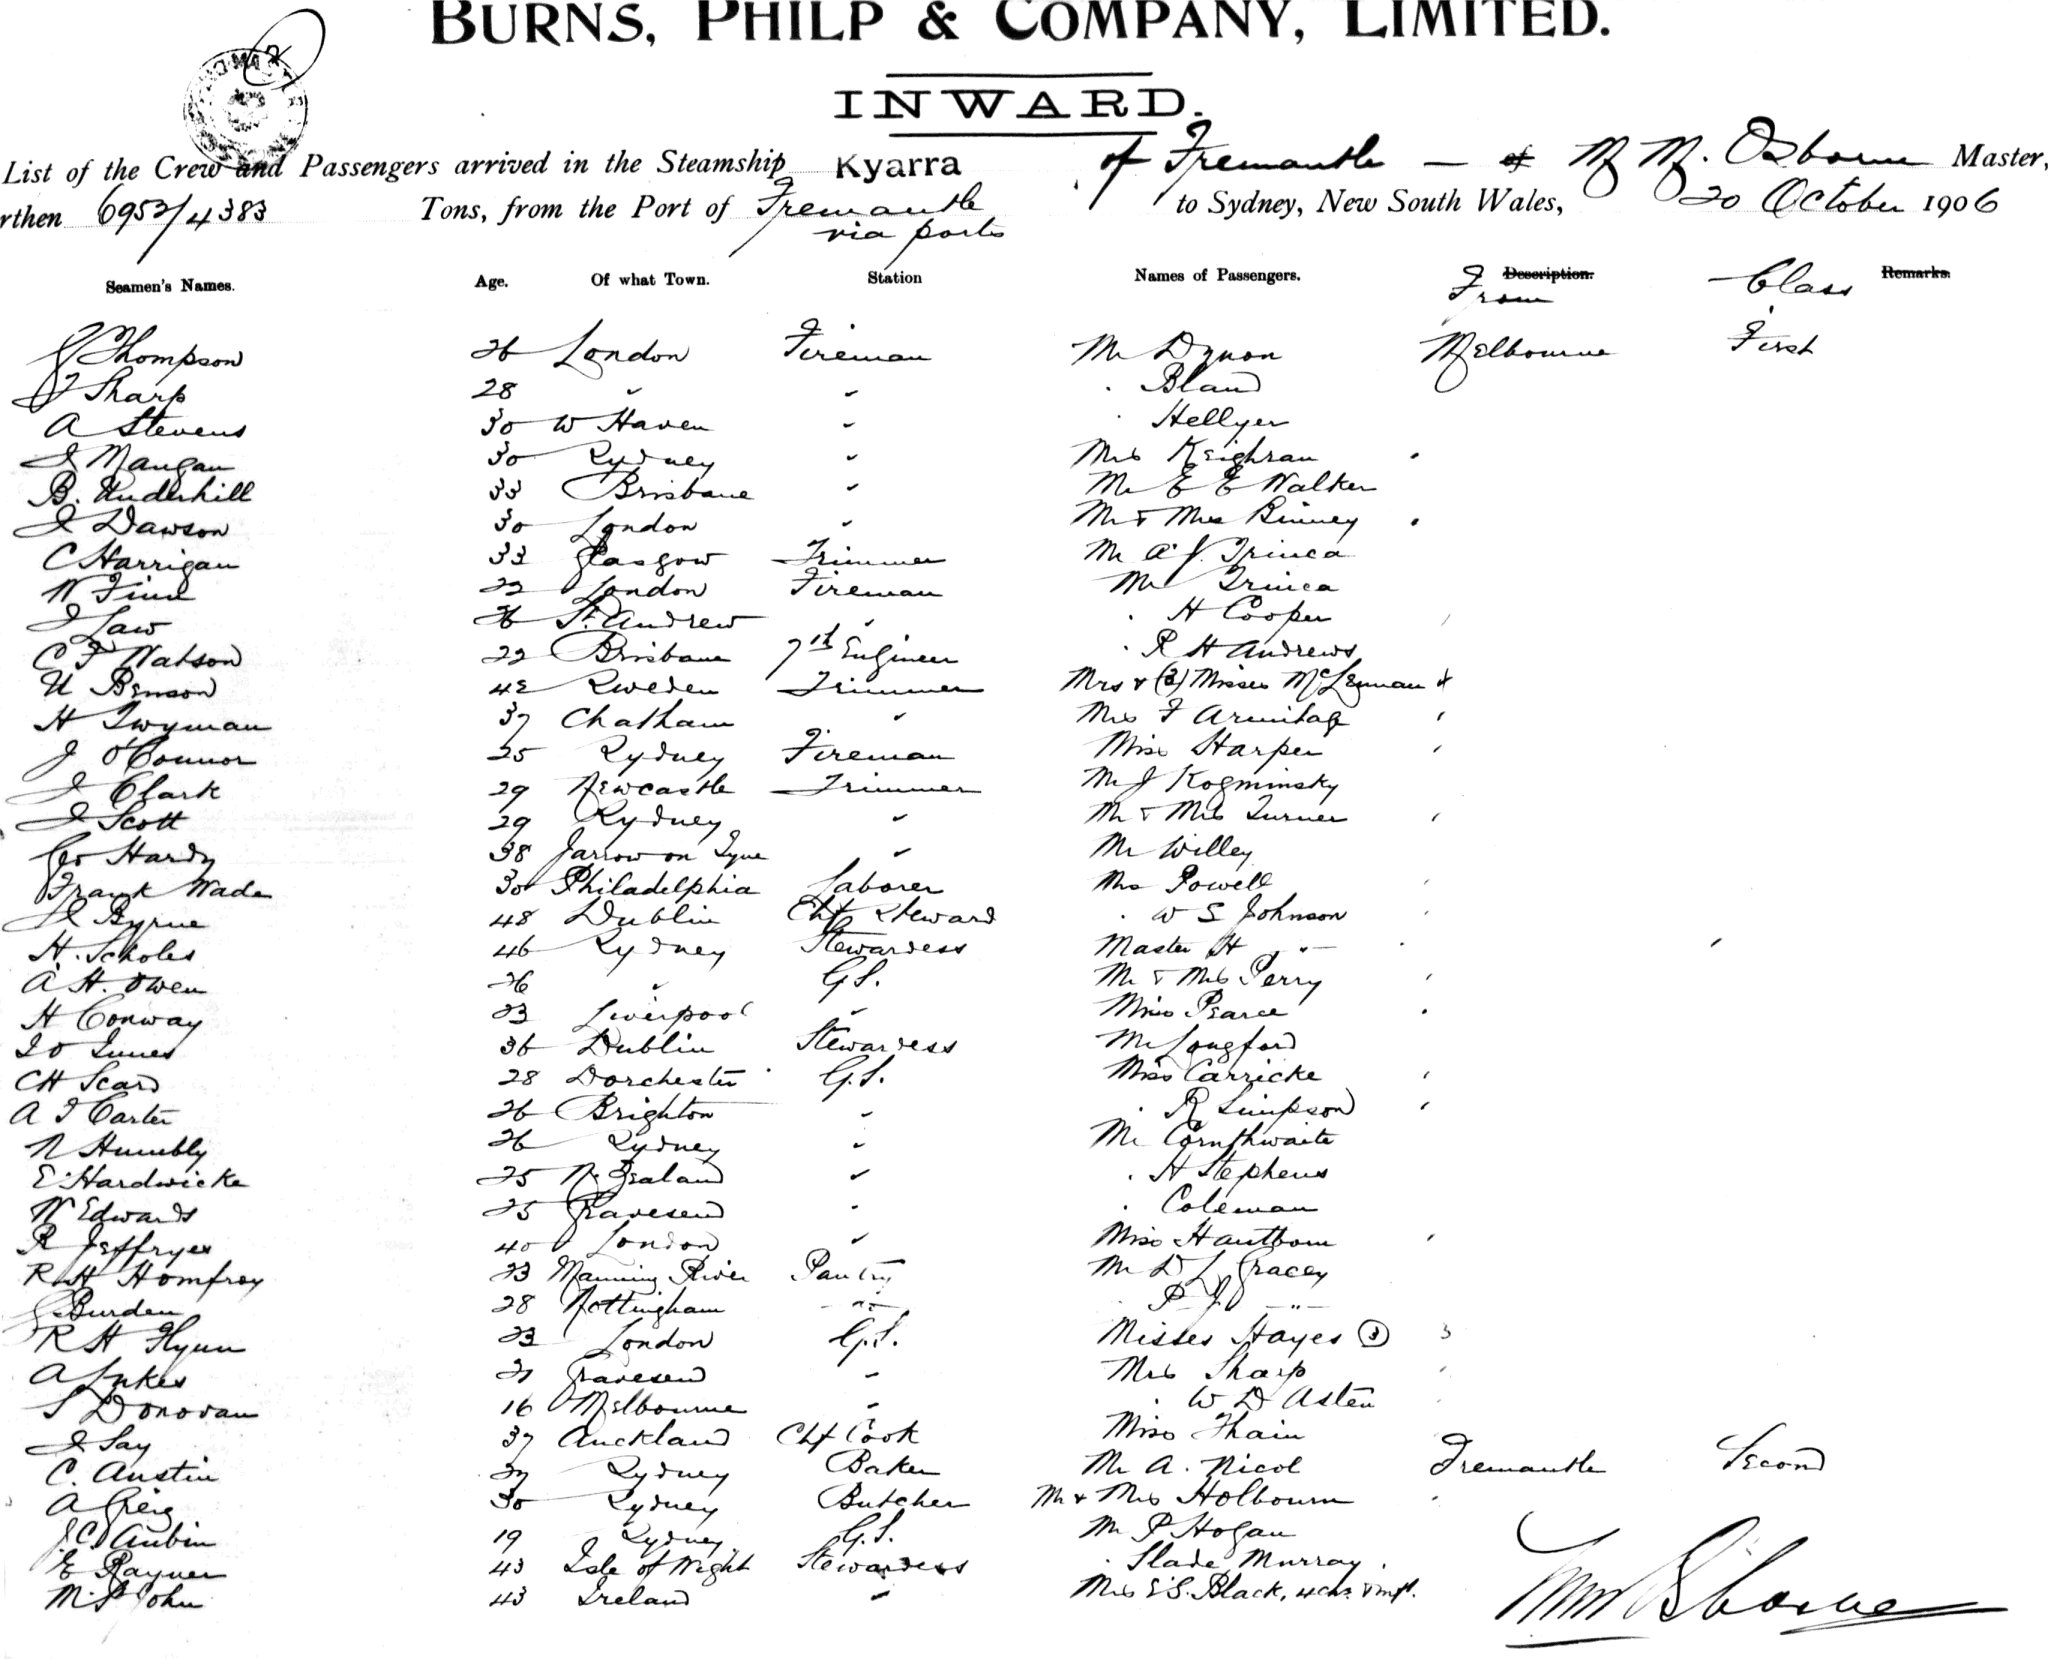 BURNS, PHILP & COMPANY, LIMITED.
INWARD.
List of the Crew and Passengers arrived in the Steamship Kyarra of Fremantle — of Osborne Master,
rthen 6953/4383 Tons, from the Port of Fremantle via ports to Sydney, New South Wales, 20 October 1906
Seamen's Names. Age. Of what Town. Station Names of Passengers. Description. From Class Remarks.
J Thompson 26 London Fireman Mr Dynon Melbourne First
Sharp 28 " " " Bland
A Stevens 30 W Haven " " Hellyer
J Mangan 30 Sydney " Mrs Keighran "
B. Underhill 33 Brisbane " Mr E E Walker
J Dawson 30 London " Mr & Mrs Binney "
C Harrigan 33 Glasgow Trimmer Mr A J. Trinca
W Finn 22 London Fireman Mr Trinca
J Law 26 St. Andrew " " H Cooper "
C F Watson 22 Brisbane 7th Engineer " R H Andrews
Benson 42 Sweden Trimmer Mrs & (3) Misses McLennan "
H Twyman 37 Chatham " Mrs F Armitage "
J O'Connor 25 Sydney Fireman Miss Harper "
J Clark 29 Newcastle Trimmer Mr J Kogminsky
J Scott 29 Sydney " Mr & Mrs Turner "
Geo Hardy 38 Jarrow on Tyne " Mr Willey
Frank Wade 30 Philadelphia Laborer Mrs Powell "
J Byrne 48 Dublin Chf Steward " W S Johnson "
H. Scholes 46 Sydney Stewardess Master H " " "
A H. Owen 26 " G.S. Mr & Mrs Perry "
H Conway 23 Liverpool " Miss Pearce "
Innes 36 Dublin Stewardess Mr Longford
CH Scard 28 Dorchester G.S. Miss Carricke "
A J Carter 26 Brighton " " R Simpson "
N Humbly 26 Sydney " Mr Cornthwaite
E. Hardwicke 25 N. Zealand " " H Stephens
W Edwards 25 Gravesend " " Coleman
R Jeffryes 40 London " Miss "
R H Homfrey 23 Manning River Pantry Mr D L Gracey
Burden 28 Nottingham " " P J "
R H Flynn 23 London G.S. Misses Hayes (3) "
A Lukes 21 Gravesend " Mrs Sharp "
S Donovan 16 Melbourne " " W D Asten "
J Say 37 Auckland Chf Cook Miss Thain
C. Austin Sydney Baker Mr A. Nicol Fremantle Second
A Greig 30 Sydney Butcher Mr & Mrs Holbourn "
J.C. Aubin 19 Sydney G.S. Mr P Hogan
E Rayner 43 Isle of Wight Stewardess " Slade Murray
M. St John 43 Ireland " Mrs E S. Black, 4 chn. & inft.
Osborne